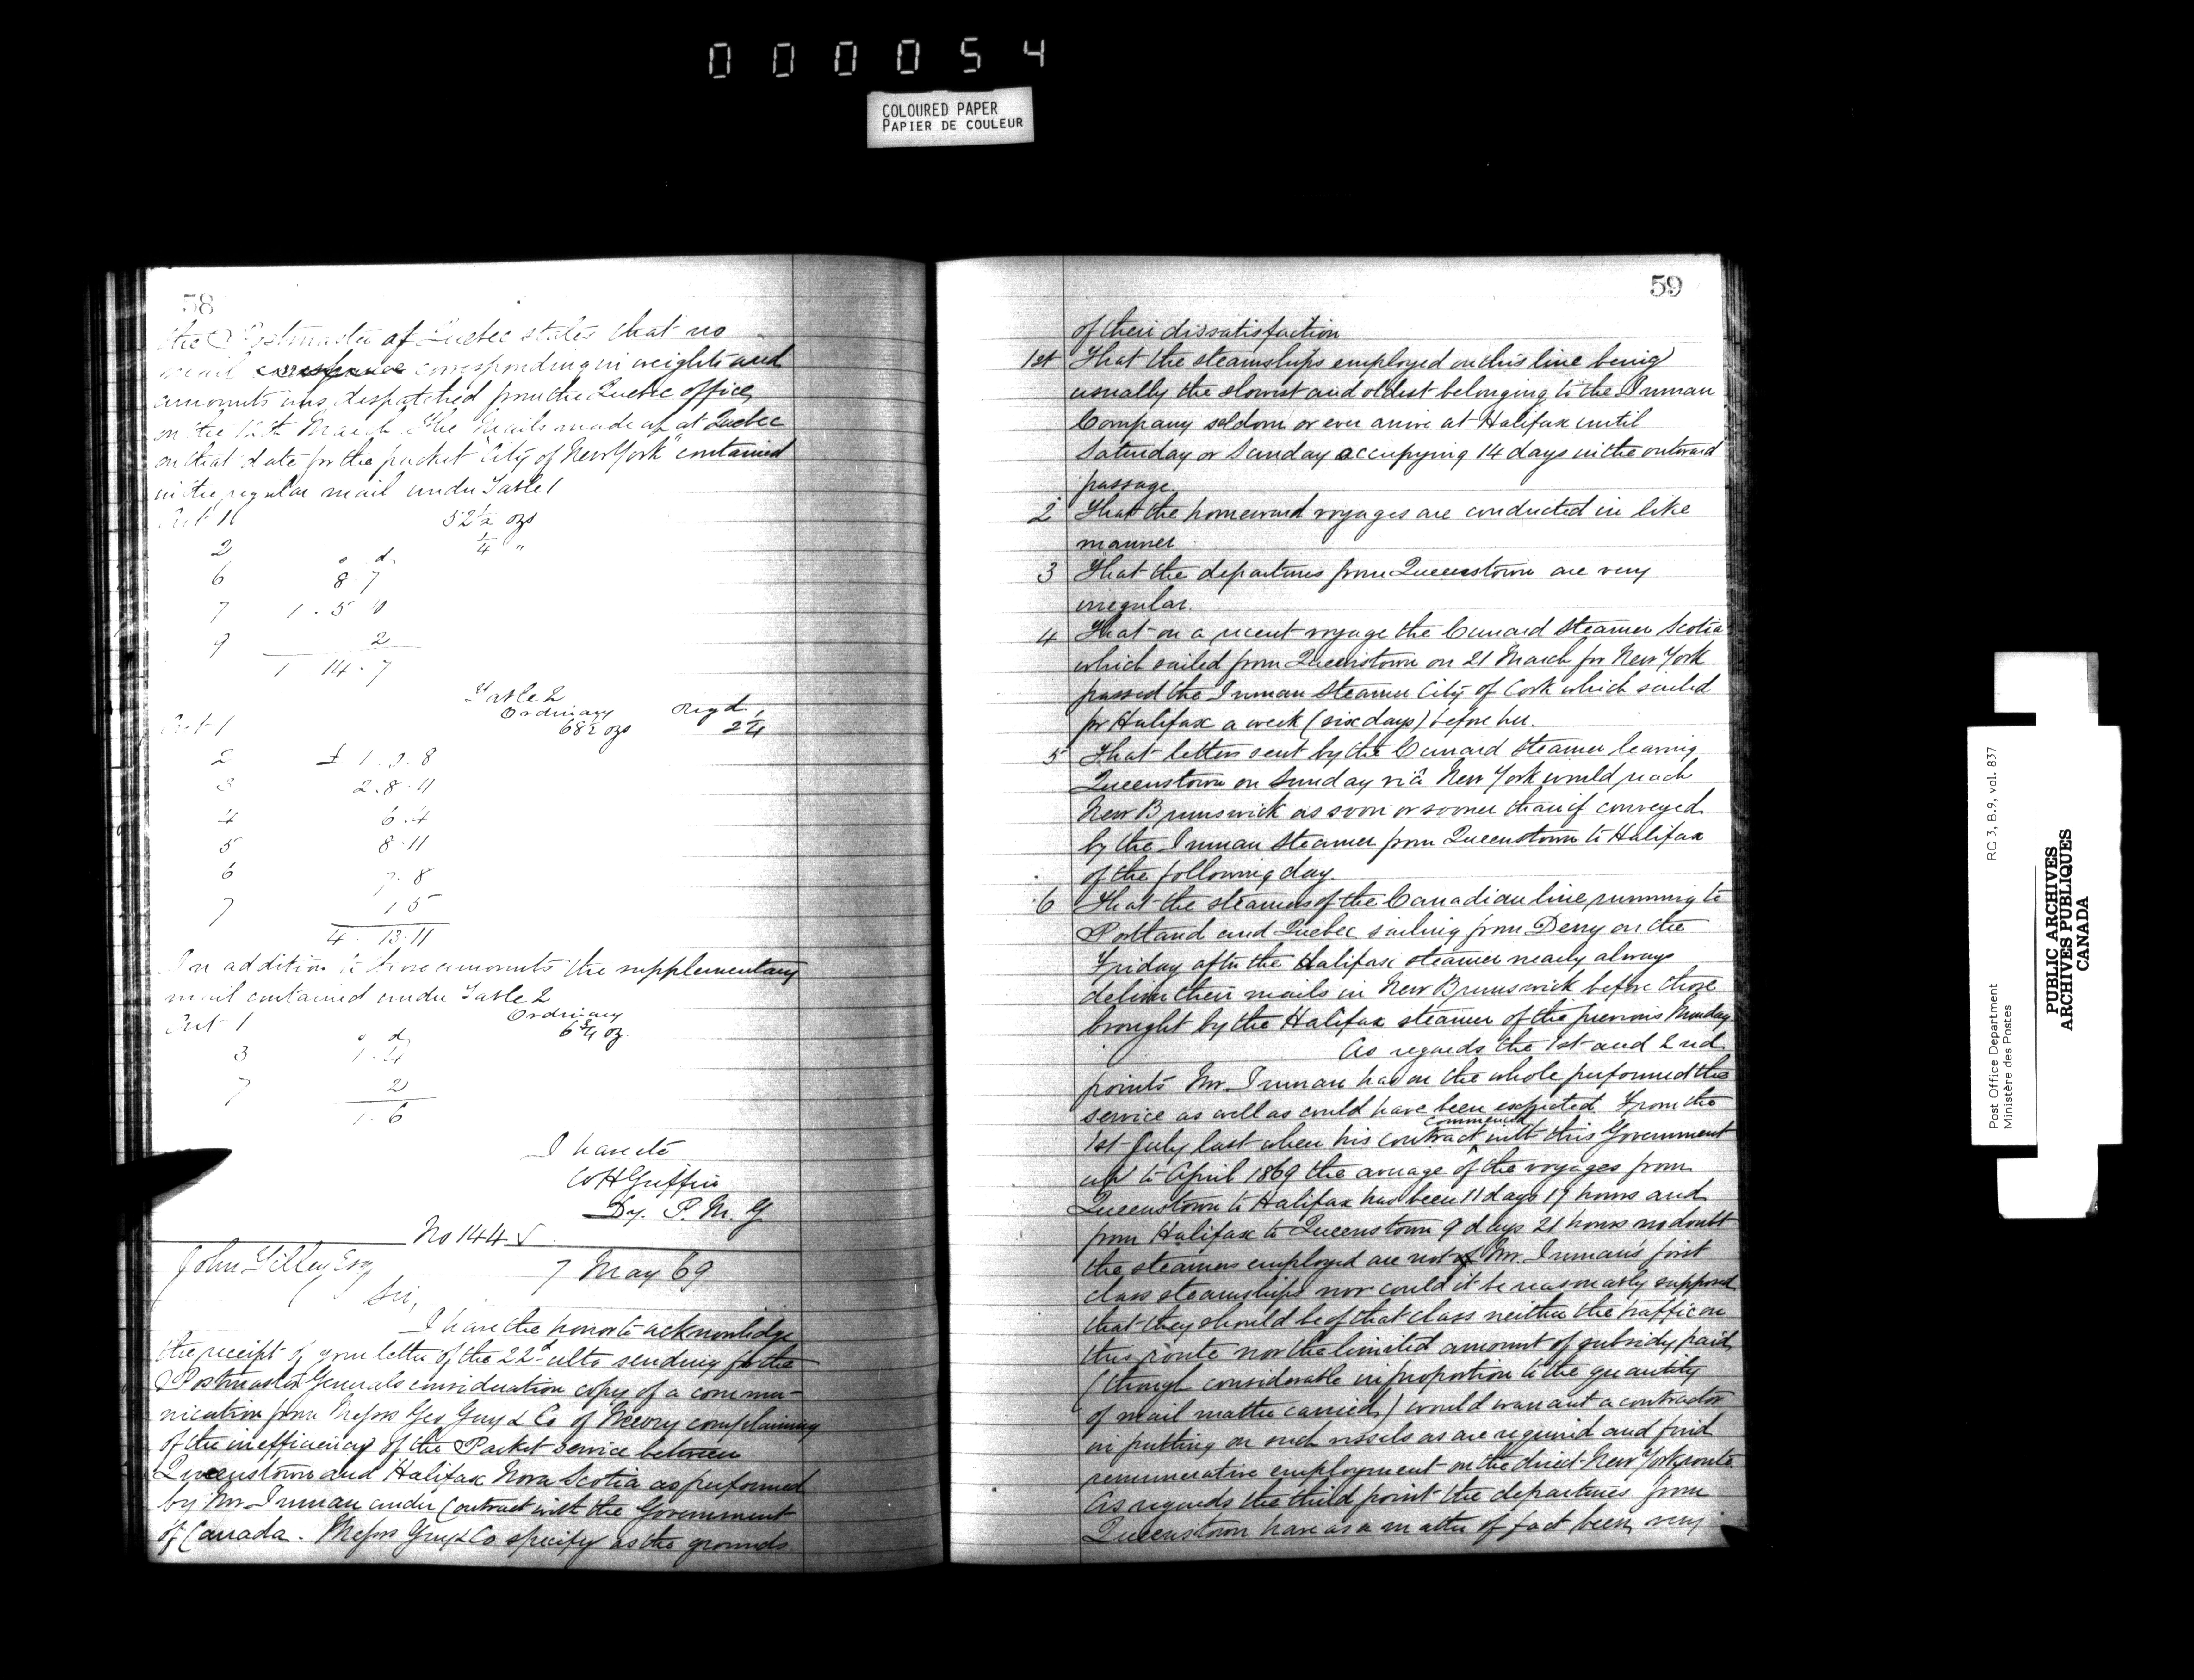 000054
COLOURED PAPER
PAPIER DE COULEUR
58
the Postmaster of Quebec states that no
mail corresponding in weights and
amounts was despatched from the Quebec office
on the 12th March. The Mails made up at Quebec
on that date for the packet "City of New York" contained
in the regular mail under Table 1
Art 1 52½ ozs
2 ¼ "
s d
6 8.7
7 1.5
9 2
1 . 14 . 7
Table 2
Ordinary Regd
Art 1 68½ ozs 2¼
2 £ 1 . 0 . 8
3 2 . 8 . 11
4 6 . 4
5 8 . 11
6 7 . 8
7 1 5
4 . 13 . 11
In addition to those amounts the supplementary
mail contained under Table 2
Ordinary
Art 1 6¾ oz.
s d
3 1 . 4
7 2
1 . 6
I have etc
W H Griffin
Dy. P. M. G
No 144
John Tilley Esq
7 May 69
Sir,
I have the honor to acknowledge
the receipt of your letter of the 22d ulto sending for the
Postmaster Generals consideration copy of a commu-
nication from Messrs Geo Guy & Co of complaining
of the inefficiency of the Packet service between
Queenstown and Halifax Nova Scotia as performed
by Mr. Inman under Contract with the Government
of Canada. Messrs Guy & Co specify as the grounds
59
of their dissatisfaction
1st That the steamships employed on this line being
usually the slowest and oldest belonging to the Inman
Company seldom or ever arrive at Halifax until
Saturday or Sunday occupying 14 days in the outward
passage.
2 That the homeward voyages are conducted in like
manner
3 That the departures from Queenstown are very
irregular.
4 That on a recent voyage the Cunard Steamer Scotia
which sailed from Queenstown on 21 March for New York
passed the Inman Steamer City of Cork which sailed
for Halifax a week (six days) before her.
5 That letters sent by the Cunard Steamer leaving
Queenstown on Sunday viâ New York would reach
New Brunswick as soon or sooner than if conveyed
by the Inman Steamer from Queenstown to Halifax
of the following day.
6 That the steamers of the Canadian line running to
Portland and Quebec sailing from Derry on the
Friday after the Halifax steamer nearly always
deliver their mails in New Brunswick before those
brought by the Halifax steamer of the previous Monday
As regards the 1st and 2nd
points Mr. Inman has on the whole performed the
service as well as could have been expected. From the
commenced
1st July last when his contract with this Government
up to April 1869 the average of the voyages from
Queenstown to Halifax has been 11 days 17 hours and
from Halifax to Queenstown 9 days 21 hours no doubt
the steamers employed are not of Mr. Inman's first
class steamships nor could it be reasonably supposed
that they should be of that class neither the traffic on
this route nor the limited amount of subsidy paid
(though considerable in proportion to the quantity
of mail matter carried) would warrant a contractor
in putting on such vessels as are required and find
remunerative employment on the direct New York route
As regards the third point the departures from
Queenstown have as a matter of fact been very
Post Office Department
Ministère des Postes
RG 3, B.9, vol. 837
PUBLIC ARCHIVES
ARCHIVES PUBLIQUES
CANADA